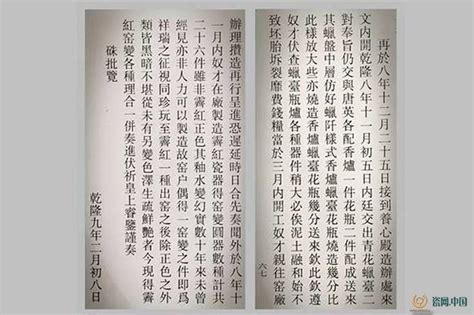 再於八年十二月二十五日接到養心殿造辦處來
文內開乾隆八年十一月初五日內廷交出青花蠟臺二
對奉旨仍交與唐英各配香爐一件花瓶二件配成送來
其蠟盤中層仿好蠟阡樣式香爐蠟臺花瓶
此樣放大些亦燒造香爐蠟臺花瓶幾分送來欽此欽遵
奴才伏查蠟臺瓶爐各種器件稍大必俟泥土融和始不
致坯胎坼裂靡費錢糧當於三月內開工奴才親往窑廠
六七
辦理攢造再行呈進恐遲延時日合先奏聞外於八年十
一月內奴才在廠製造霽紅瓷器得窑變圓器數種計共
二十六件雖非霽紅正色其釉水變幻實數十年來未曾
經見亦非人力可以製造故窑户偶得一窑變之件即為
祥瑞之徵視同珍玩至霽紅一種出窑之後除正色之外
類皆黑暗不堪從未有另變色澤生疏鮮艷者今現得霽
紅窑變各種理合一併奏進伏祈皇上睿鑒謹奏
硃批覽
乾隆九年二月初八日
瓷网.中国